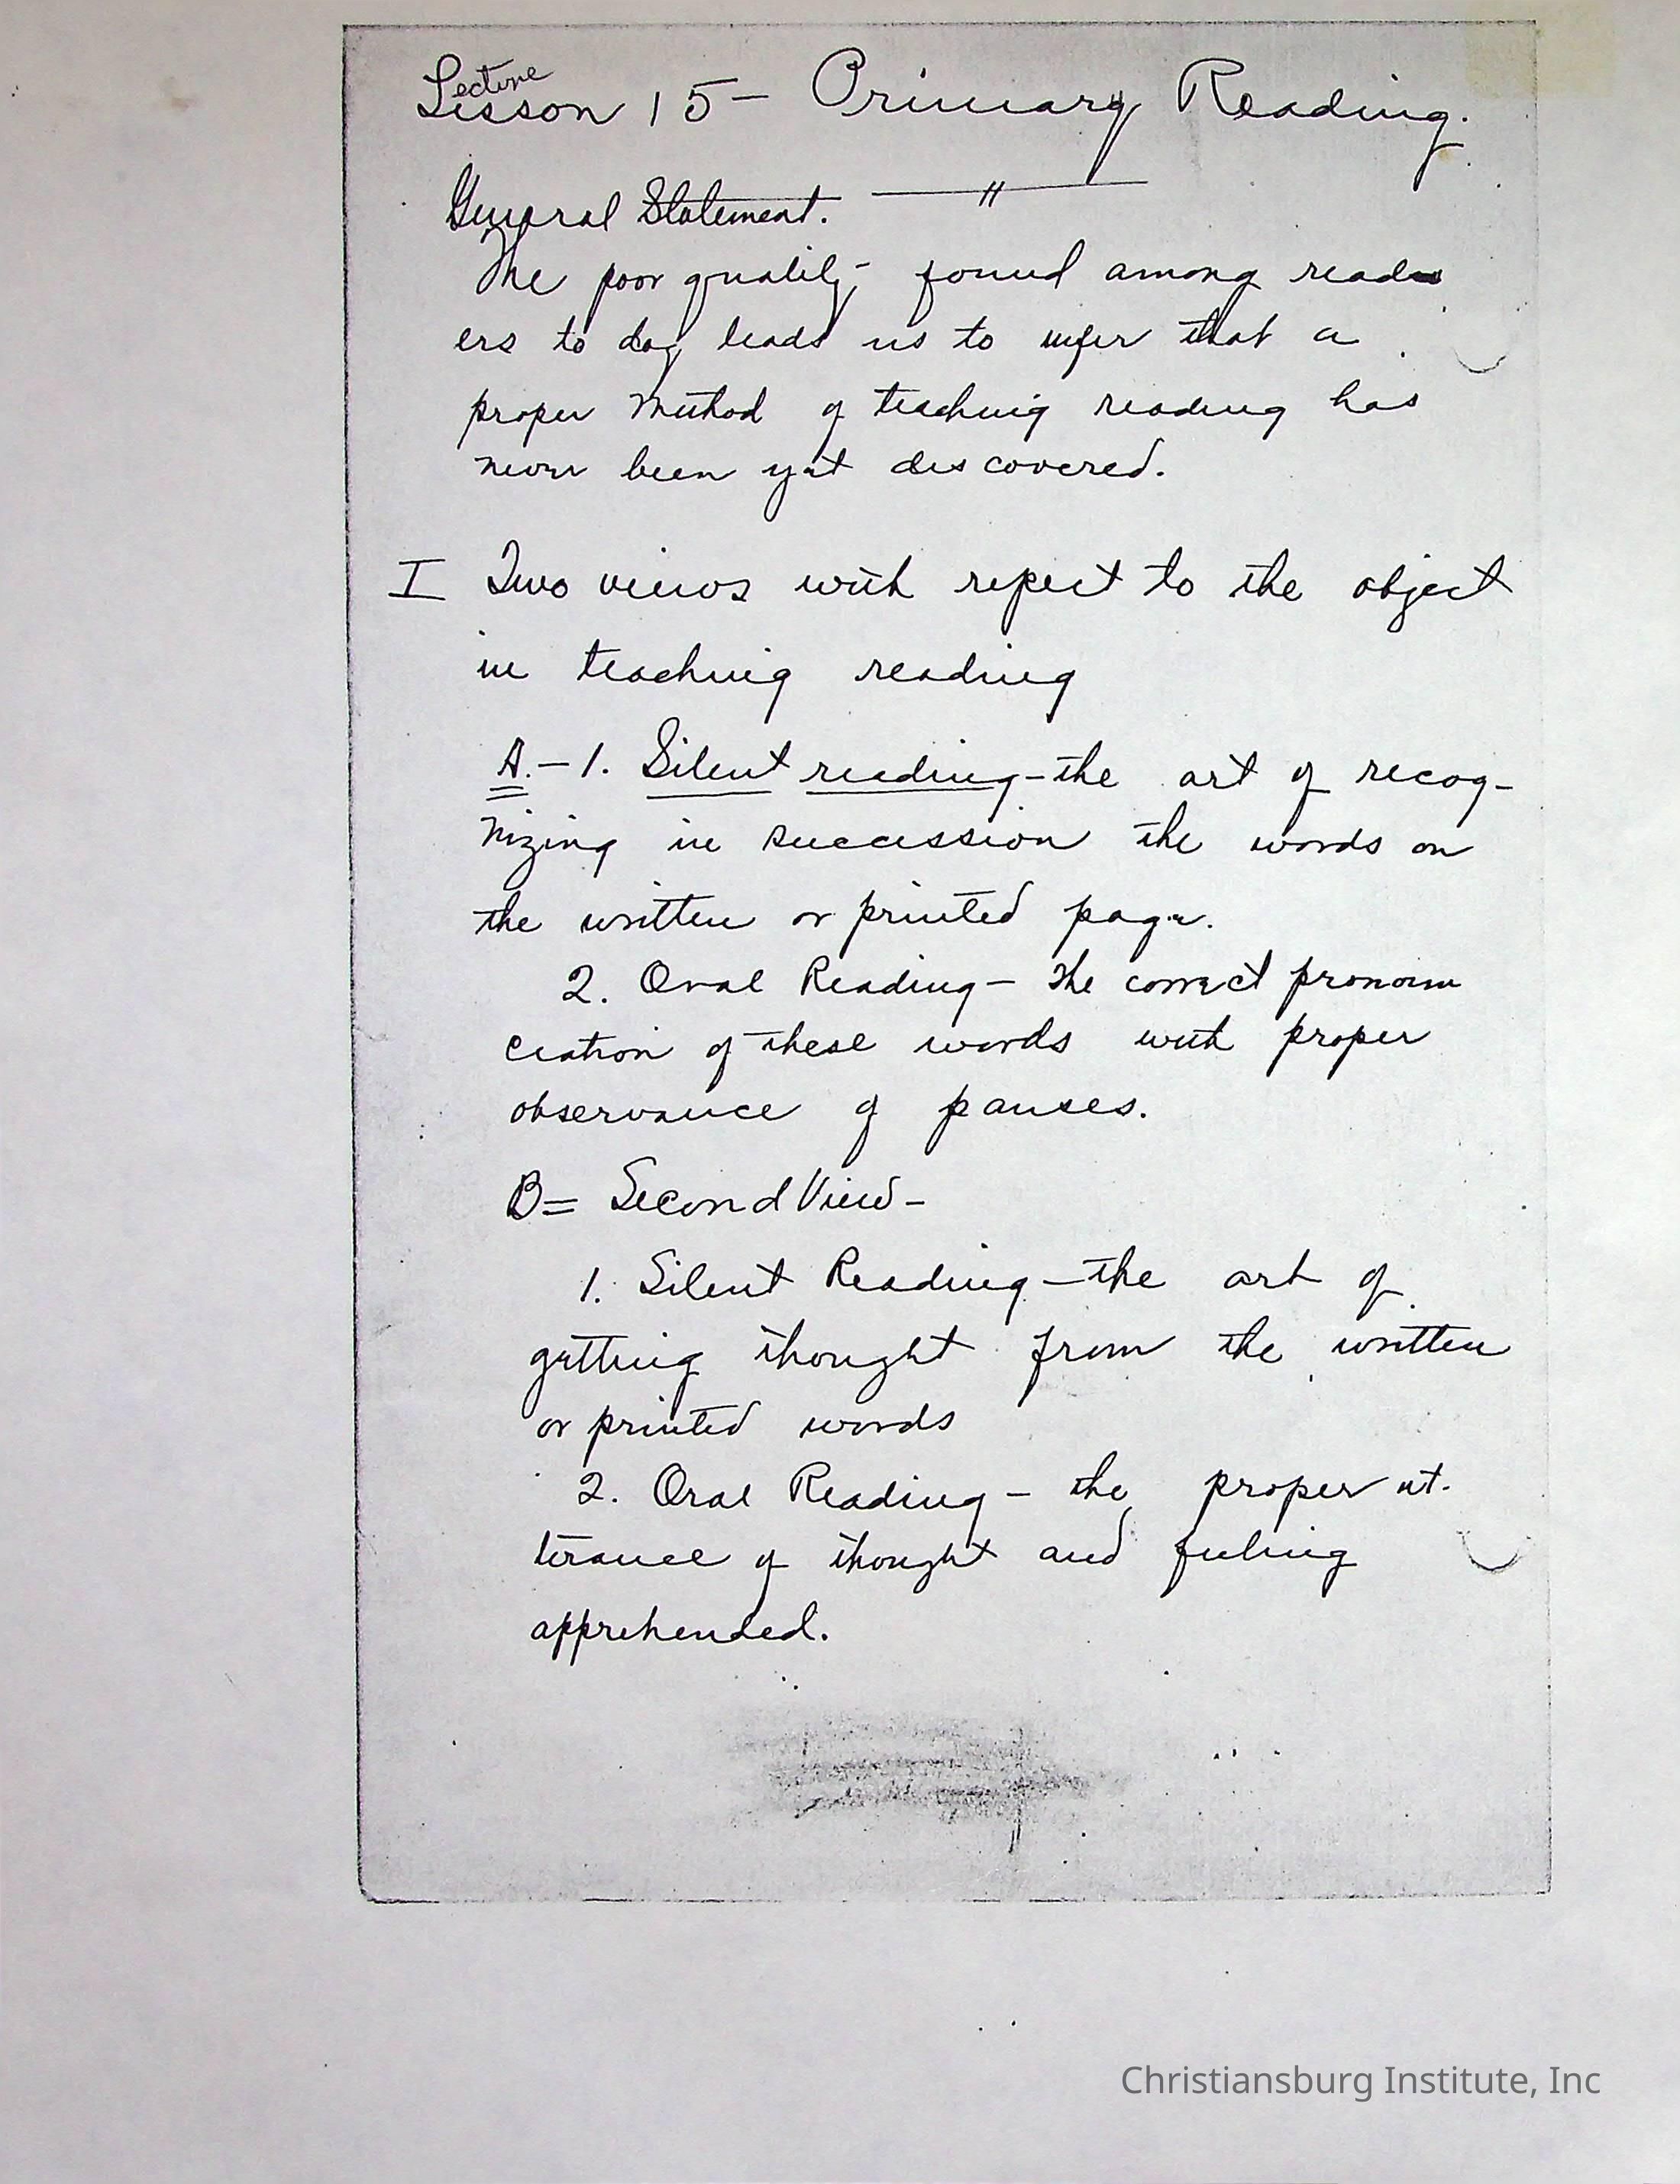 Lecture
Lesson 15 - Primary Reading.
General Statement.
The poor quality found among read
ers to day leads us to infer that a
proper method of teaching reading has
never been yet discovered.
I Two views with repect to the object
in teaching reading
A. - 1. Silent reading - the art of recog-
nizing in succession the words on
the written or printed page.
2. Oral Reading - The correct pronoun
ciation of these words with proper
observance of pauses.
B= Second View -
1. Silent Reading - the art of
getting thought from the written
or printed words
2. Oral Reading - the proper ut-
terance of thought and feeling
apprehended.
Christiansburg Institute, Inc